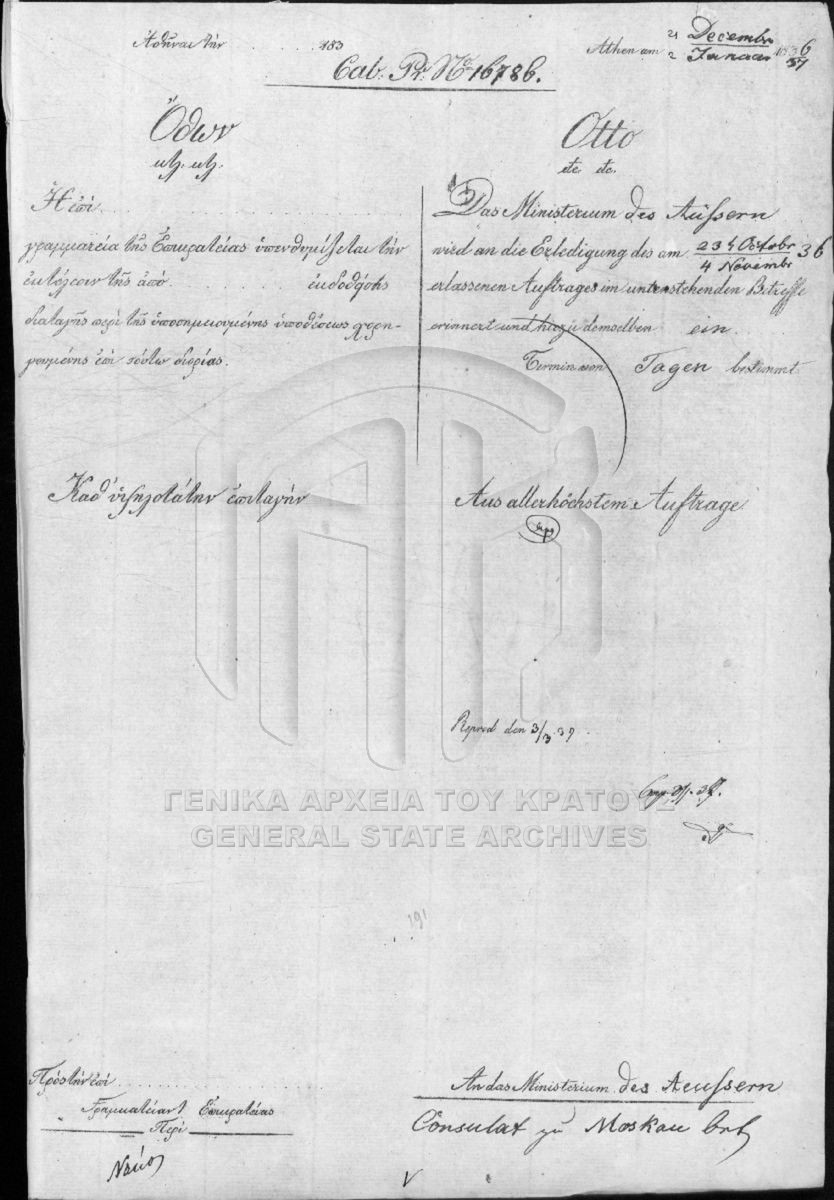 Ἀθῆναι τὴν 183
Cab. Pr. No 16786.
Athen am 21 Decembr 1836
2 Januar 37
Ὄθων
κτλ. κτλ.
Ἡ ἐπὶ
γραμματεία τῆς Ἐπικρατείας ὑπενθυμίζεται τὴν
ἐκτέλεσιν τῆς ἀπὸ ἐκδοθείσης
διαταγῆς περὶ τῆς ὑποσημειουμένης ὑποθέσεως
ἐπὶ τούτῳ
Καθ' ὑψηλοτάτην ἐπιταγήν
Otto
etc. etc.
Das Ministerium des Äussern
wird an die Erledigung des am 23 Octobr 36
4 Novembr
erlassenen Auftrages im untenstehenden Betreffe
erinnert und hiezu demselben ein
Termin von Tagen bestimmt
Aus allerhöchstem Auftrage
den 3/3 37
ΓΕΝΙΚΑ ΑΡΧΕΙΑ ΤΟΥ ΚΡΑΤΟΥΣ
GENERAL STATE ARCHIVES
191
Πρὸς τὴν ἐπὶ
Γραμματείαν τ Ἐπικρατείας
Περὶ
An das Ministerium des Aeussern
Consulat zu Moskau betr